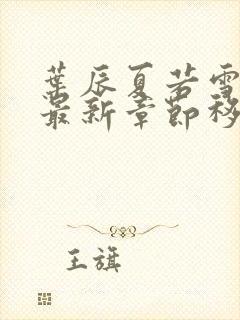 葉辰夏若雪
最新章節移
王旗